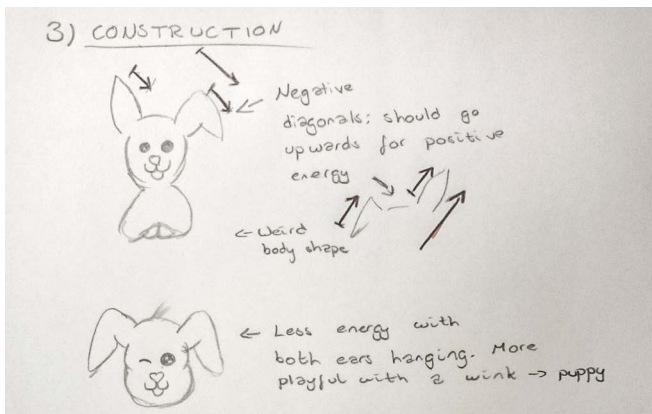 3) CONSTRUCTION
Negative
diagonals: should go
upwards for positive
energy
Weird
body shape
Less energy with
both ears hanging. More
playful with a wink → puppy